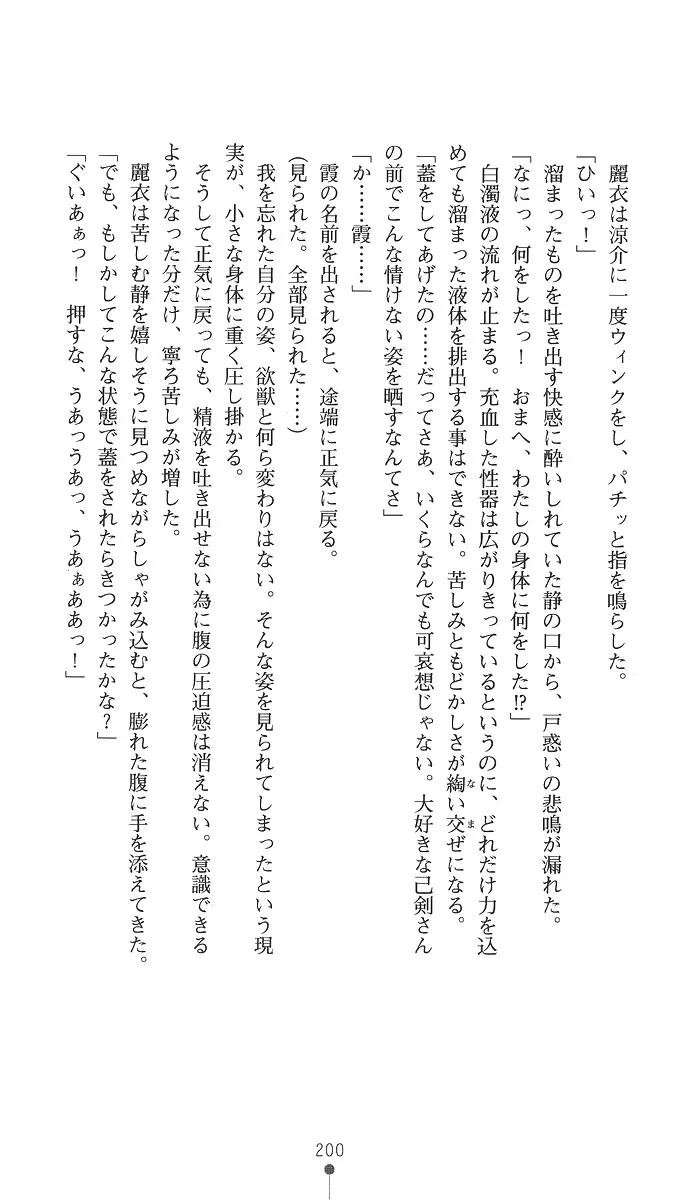 麗衣は涼介に一度ウィンクをし、パチッと指を鳴らした。
「ひいっ！」
溜まったものを吐き出す快感に酔いしれていた静の口から、戸惑いの悲鳴が漏れた。
「なにっ、何をしたっ！　おまへ、わたしの身体に何をした!?」
白濁液の流れが止まる。充血した性器は広がりきっているというのに、どれだけ力を込
めても溜まった液体を排出する事はできない。苦しみともどかしさが綯い交ぜになる。
「蓋をしてあげたの……だってさあ、いくらなんでも可哀想じゃない。大好きな己剣さん
の前でこんな情けない姿を晒すなんてさ」
「か……霞……」
霞の名前を出されると、途端に正気に戻る。
（見られた。全部見られた……）
我を忘れた自分の姿、欲獣と何ら変わりはない。そんな姿を見られてしまったという現
実が、小さな身体に重く圧し掛かる。
そうして正気に戻っても、精液を吐き出せない為に腹の圧迫感は消えない。意識できる
ようになった分だけ、寧ろ苦しみが増した。
麗衣は苦しむ静を嬉しそうに見つめながらしゃがみ込むと、膨れた腹に手を添えてきた。
「でも、もしかしてこんな状態で蓋をされたらきつかったかな？」
「ぐいあぁっ！　押すな、うあっうあっ、うあぁああっ！」
200